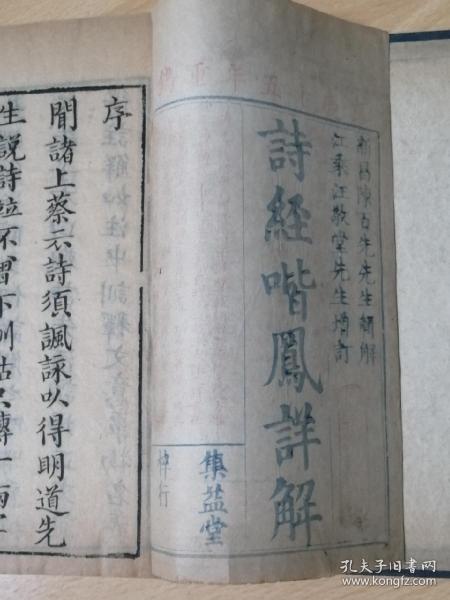 五年重鐫
新昌陳百先先生輯解
江汞江敬堂先生增訂
詩經喈鳳詳解
集益堂
梓行
序
聞諸上蔡云詩須諷詠以得明道先
生說詩並不曾下訓詁只轉一兩字
孔夫子旧书网
www.kongfz.com